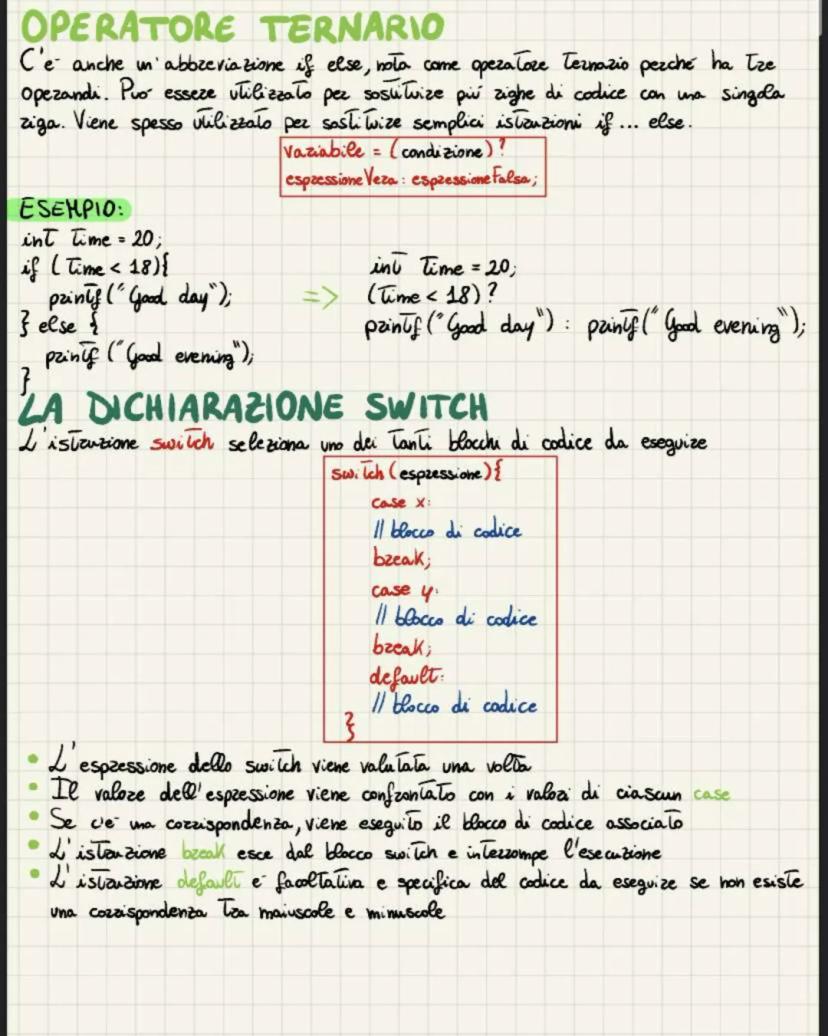 OPERATORE TERNARIO
C'e' anche un'abbreviazione if else, nota come operatore ternario perché ha tre
operandi. Puo' essere utilizzato per sostituire piú righe di codice con una singola
riga. Viene spesso utilizzato per sostituire semplici istruzioni if ... else.
variabile = (condizione) ?
espressioneVera : espressioneFalsa;
ESEMPIO:
int time = 20;
if (time < 18){
printf("Good day");
} else {
printf ("Good evening");
}
=>
int time = 20;
(time < 18) ?
printf("Good day") : printf("Good evening");
LA DICHIARAZIONE SWITCH
L'istruzione switch seleziona uno dei tanti blocchi di codice da eseguire
switch(espressione){
case x:
// blocco di codice
break;
case y:
// blocco di codice
break;
default:
// blocco di codice
}
• L'espressione dello switch viene valutata una volta
• Il valore dell'espressione viene confrontato con i valori di ciascun case
• Se c'e' una corrispondenza, viene eseguito il blocco di codice associato
• L'istruzione break esce dal blocco switch e interrompe l'esecuzione
• L'istruzione default e' facoltativa e specifica del codice da eseguire se non esiste
una corrispondenza tra maiuscole e minuscole